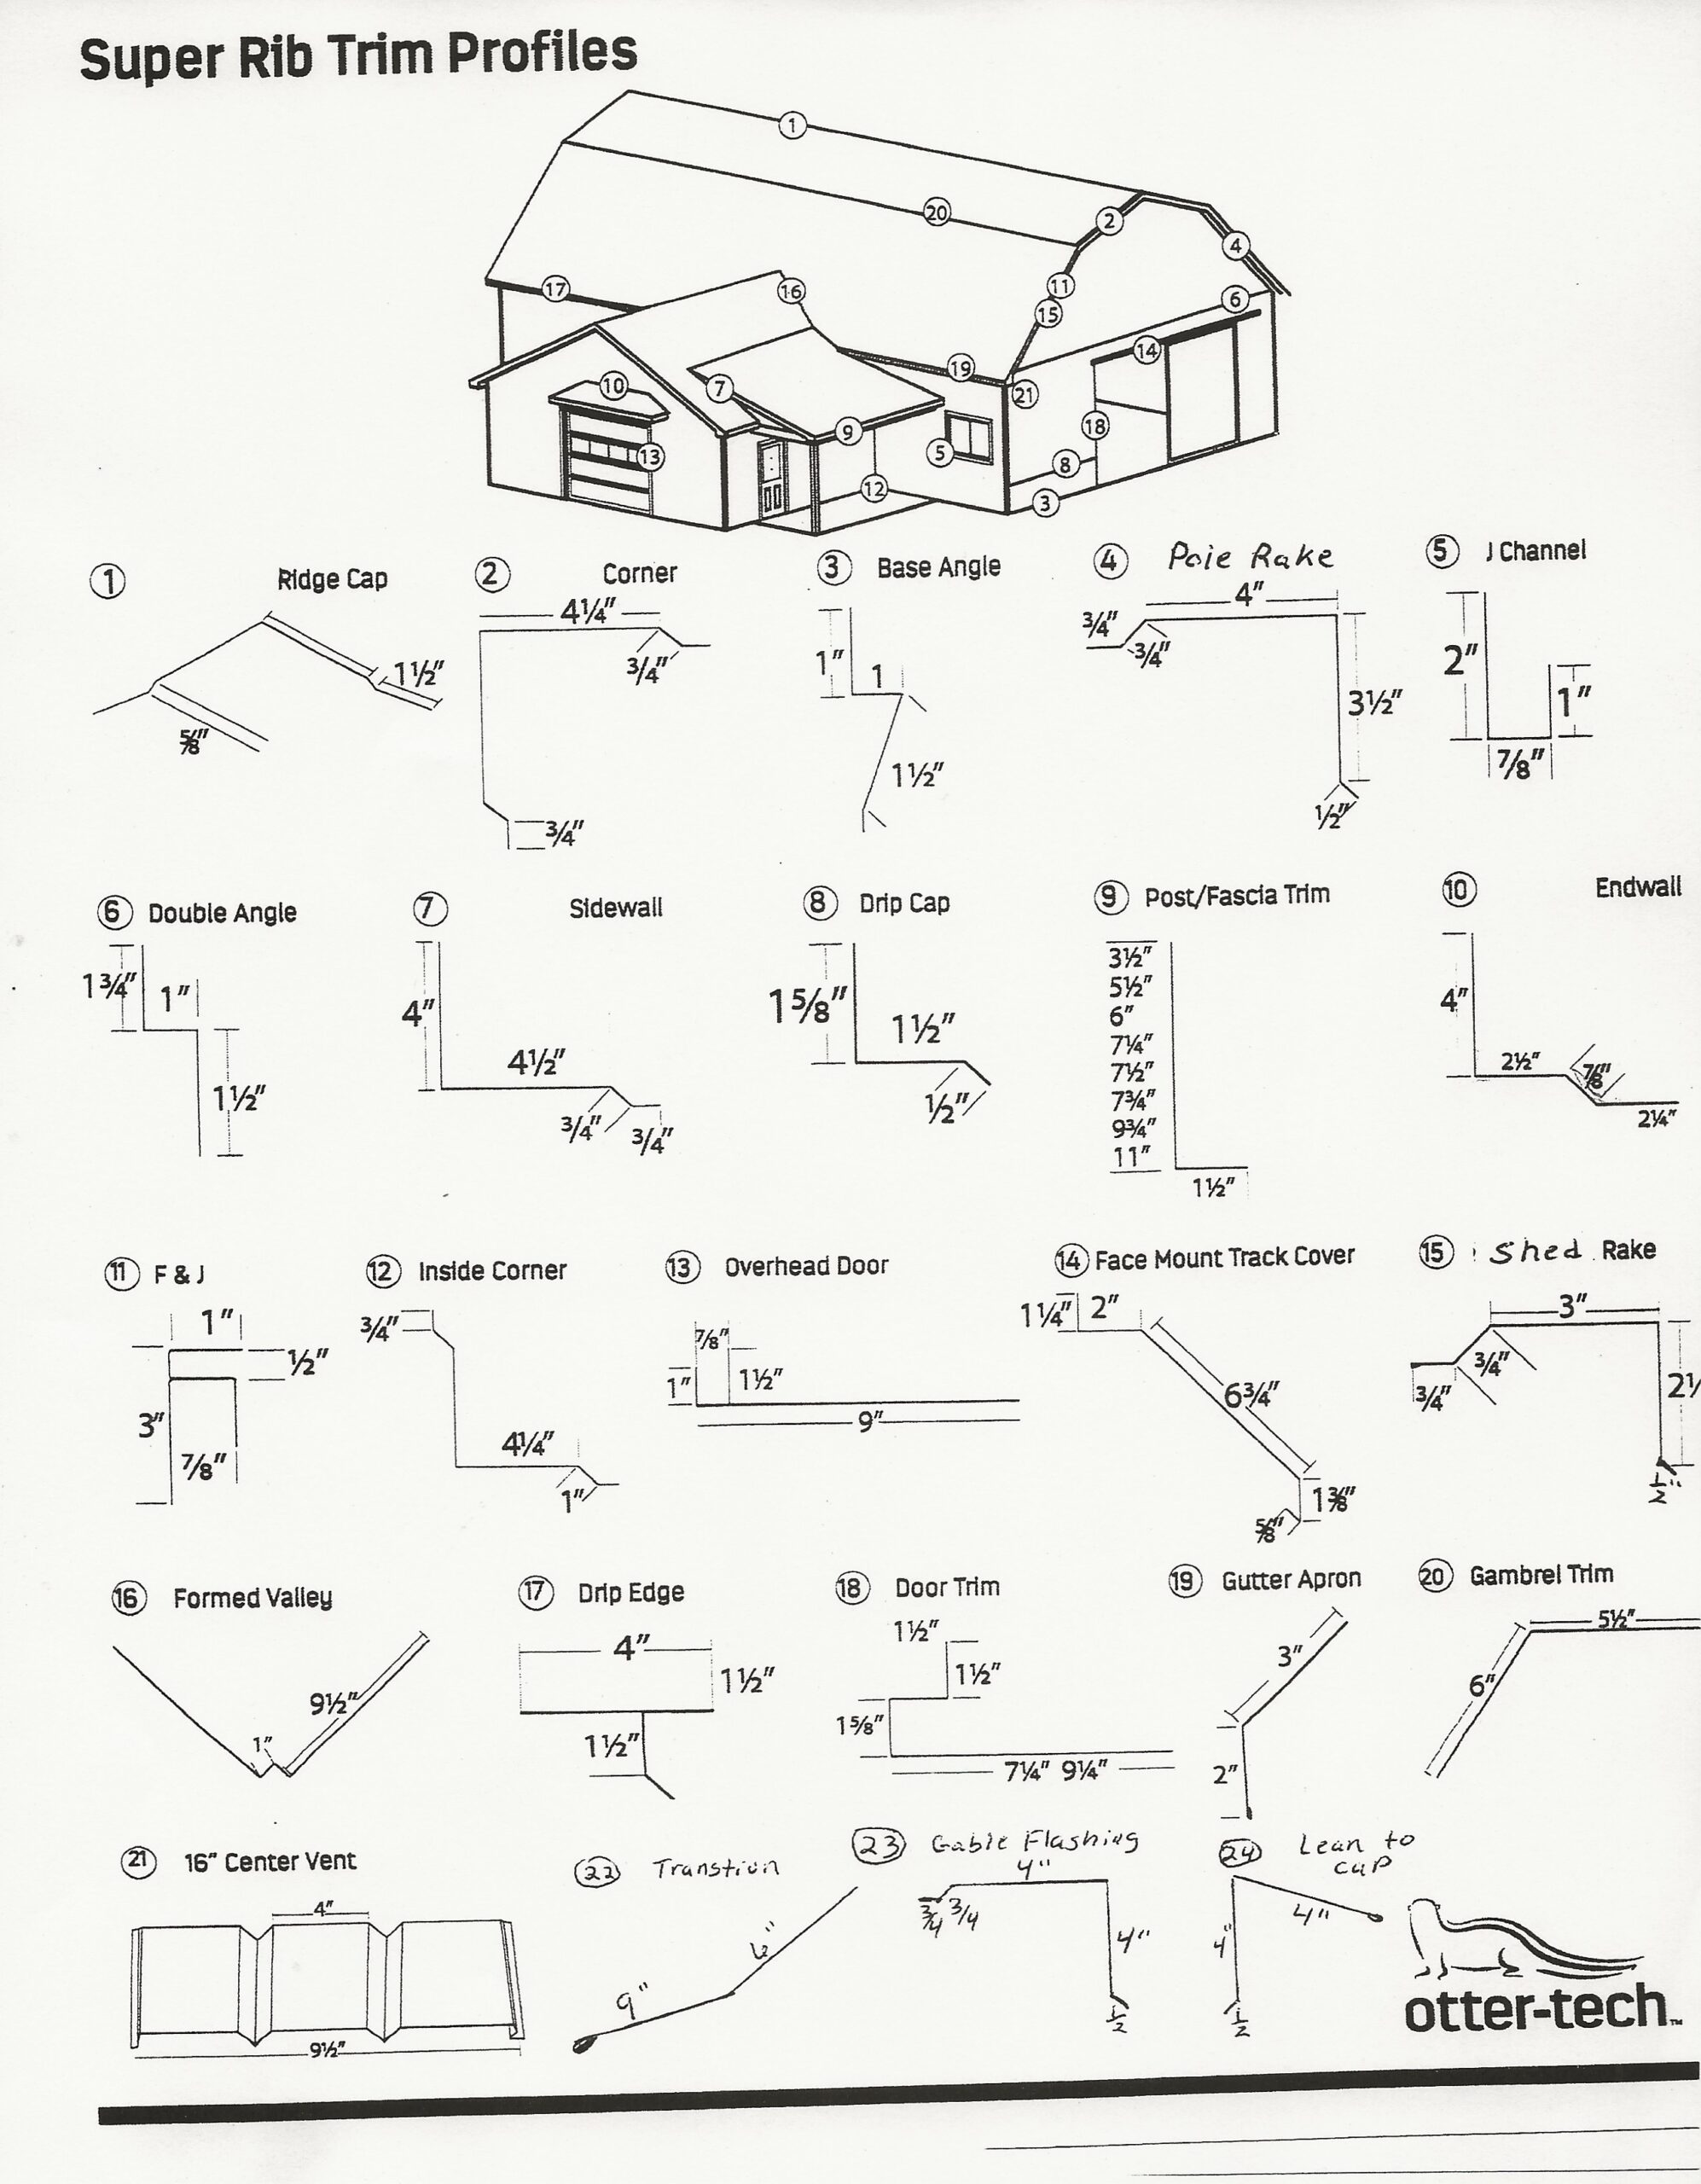 Super Rib Trim Profiles
1
20
2
4
11
15
6
17
16
14
19
21
10
7
9
5
18
13
8
12
3
1 Ridge Cap
1½"
5/8"
2 Corner
4¼"
3/4"
3/4"
3 Base Angle
1"
1
1½"
4 Pole Rake
4"
3/4"
3/4"
3½"
½"
5 J Channel
2"
1"
7/8"
6 Double Angle
1¾"
1"
1½"
7 Sidewall
4"
4½"
3/4"
3/4"
8 Drip Cap
1 5/8"
1½"
½"
9 Post/Fascia Trim
3½"
5½"
6"
7¼"
7½"
7¾"
9¾"
11"
1½"
10 Endwall
4"
2½"
7/8"
2¼"
11 F & J
1"
½"
3"
7/8"
12 Inside Corner
3/4"
4¼"
1"
13 Overhead Door
7/8"
1"
1½"
9"
14 Face Mount Track Cover
1¼"
2"
6¾"
1 3/8"
5/8"
15 Shed Rake
3"
3/4"
3/4"
½"
16 Formed Valley
9½"
1"
17 Drip Edge
4"
1½"
1½"
18 Door Trim
1½"
1½"
1 5/8"
7¼" 9¼"
19 Gutter Apron
3"
2"
20 Gambrel Trim
5½"
6"
21 16" Center Vent
4"
9½"
22 Transtion
9"
23 Gable Flashing
4"
3/4 3/4
4"
½
24 Lean to
cap
4"
4"
½
otter-tech™